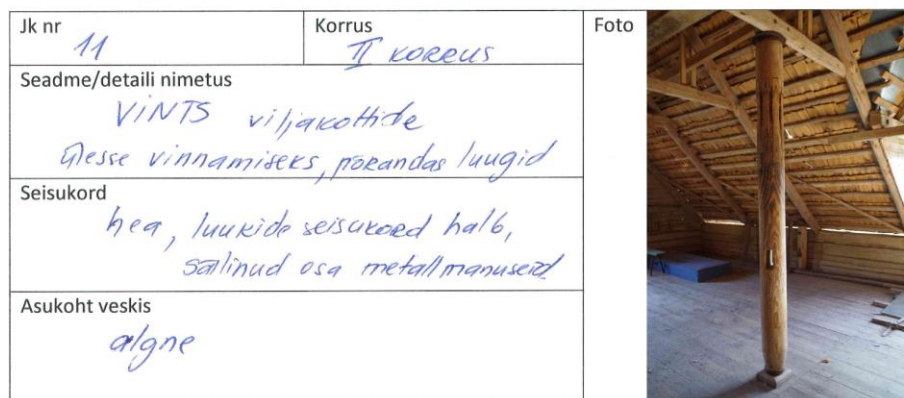 Jk nr
11
Korrus
II KORRUS
Foto
Seadme/detaili nimetus
VINTS viljakottide
ülesse vinnamiseks, põrandas luugid
Seisukord
hea, luukide seisukord halb,
säilinud osa metallmanuseid
Asukoht veskis
algne